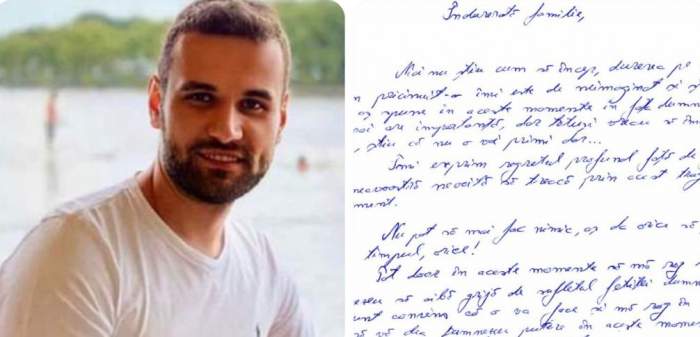 Îndurerată familie,
Nici nu știu cum să încep, durerea pe
pricinuit-o îmi este de neimaginat și
aș spune în aceste momente în fața dumn
are importanță, dar totuși vreau să
știu că nu o să primi dar...
Îmi exprim regretul profund față de
neavoastră nevoită să treacă prin acest
ment.
Nu pot să mai fac nimic, aș da orice să
timpul, orice!
Pot doar în aceste momente să mă rog
ezeu să aibă grijă de sufletul fetiței dumn
unt convins că o va face și mă rog în
să vă dea Dumnezeu putere în aceste mome